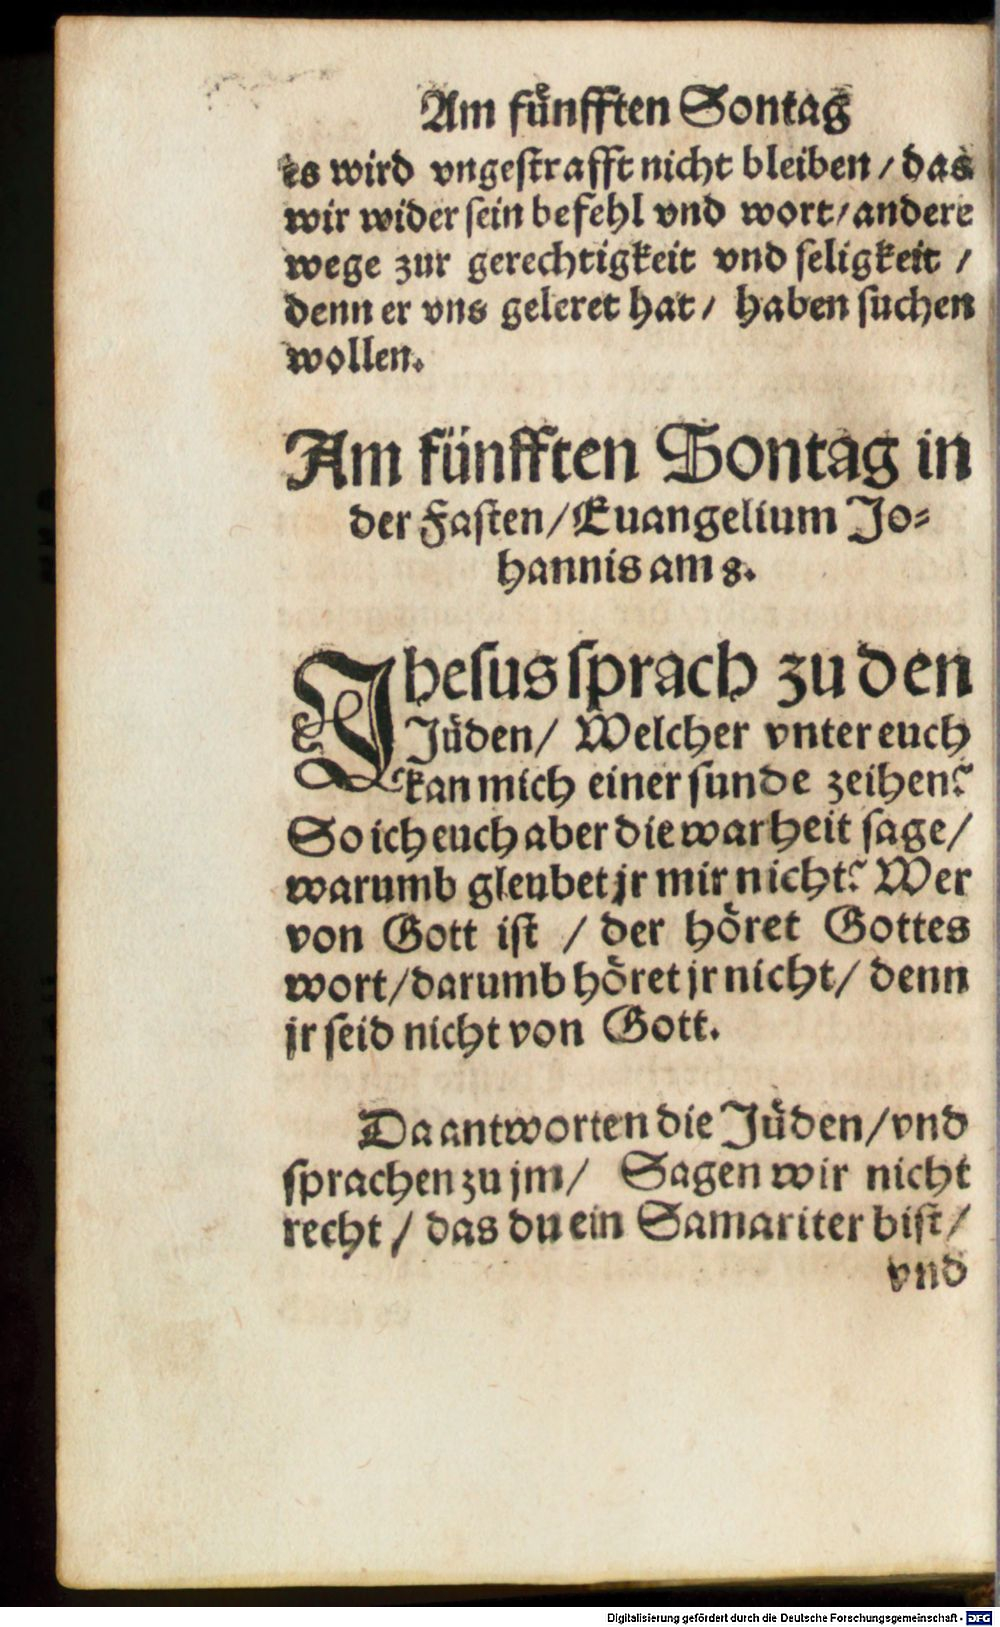 Am fuͤnfften Sontag
es wird vngestrafft nicht bleiben / das
wir wider sein befehl vnd wort / andere
wege zur gerechtigkeit vnd seligkeit /
denn er vns geleret hat / haben suchen
wollen.
Am fünfften Sontag in
der Fasten / Euangelium Jo⸗
hannis am 8.
Jhesus sprach zu den
Jüden / Welcher vnter euch
kan mich einer sunde zeihen?
So ich euch aber die warheit sage /
warumb gleubet jr mir nicht? Wer
von Gott ist / der hoͤret Gottes
wort / darumb hoͤret jr nicht / denn
jr seid nicht von Gott.
Da antworten die Juͤden / vnd
sprachen zu jm / Sagen wir nicht
recht / das du ein Samariter bist /
vnd
Digitalisierung gefördert durch die Deutsche Forschungsgemeinschaft - DFG